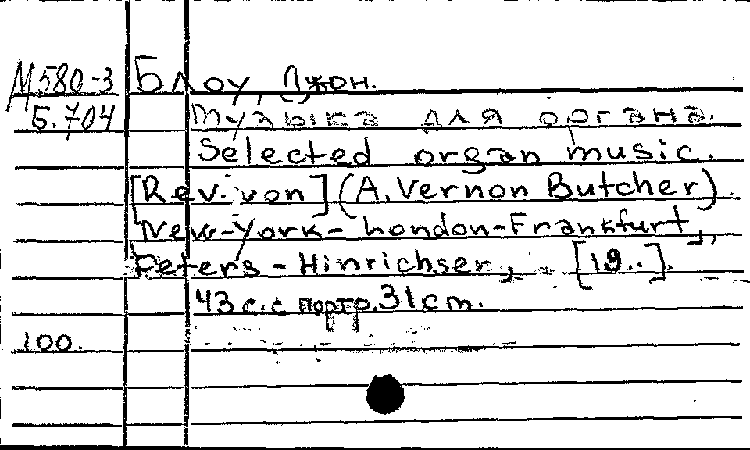 М580-3 Блоу, Джон.
Б.704 Музыка для органа.
Selected organ music.
[Rev. von] (A. Vernon Butcher).
New-York-London-Frankfurt,
Peters-Hinrichser, [19..].
43 с. с портр. 31 cm.
100.